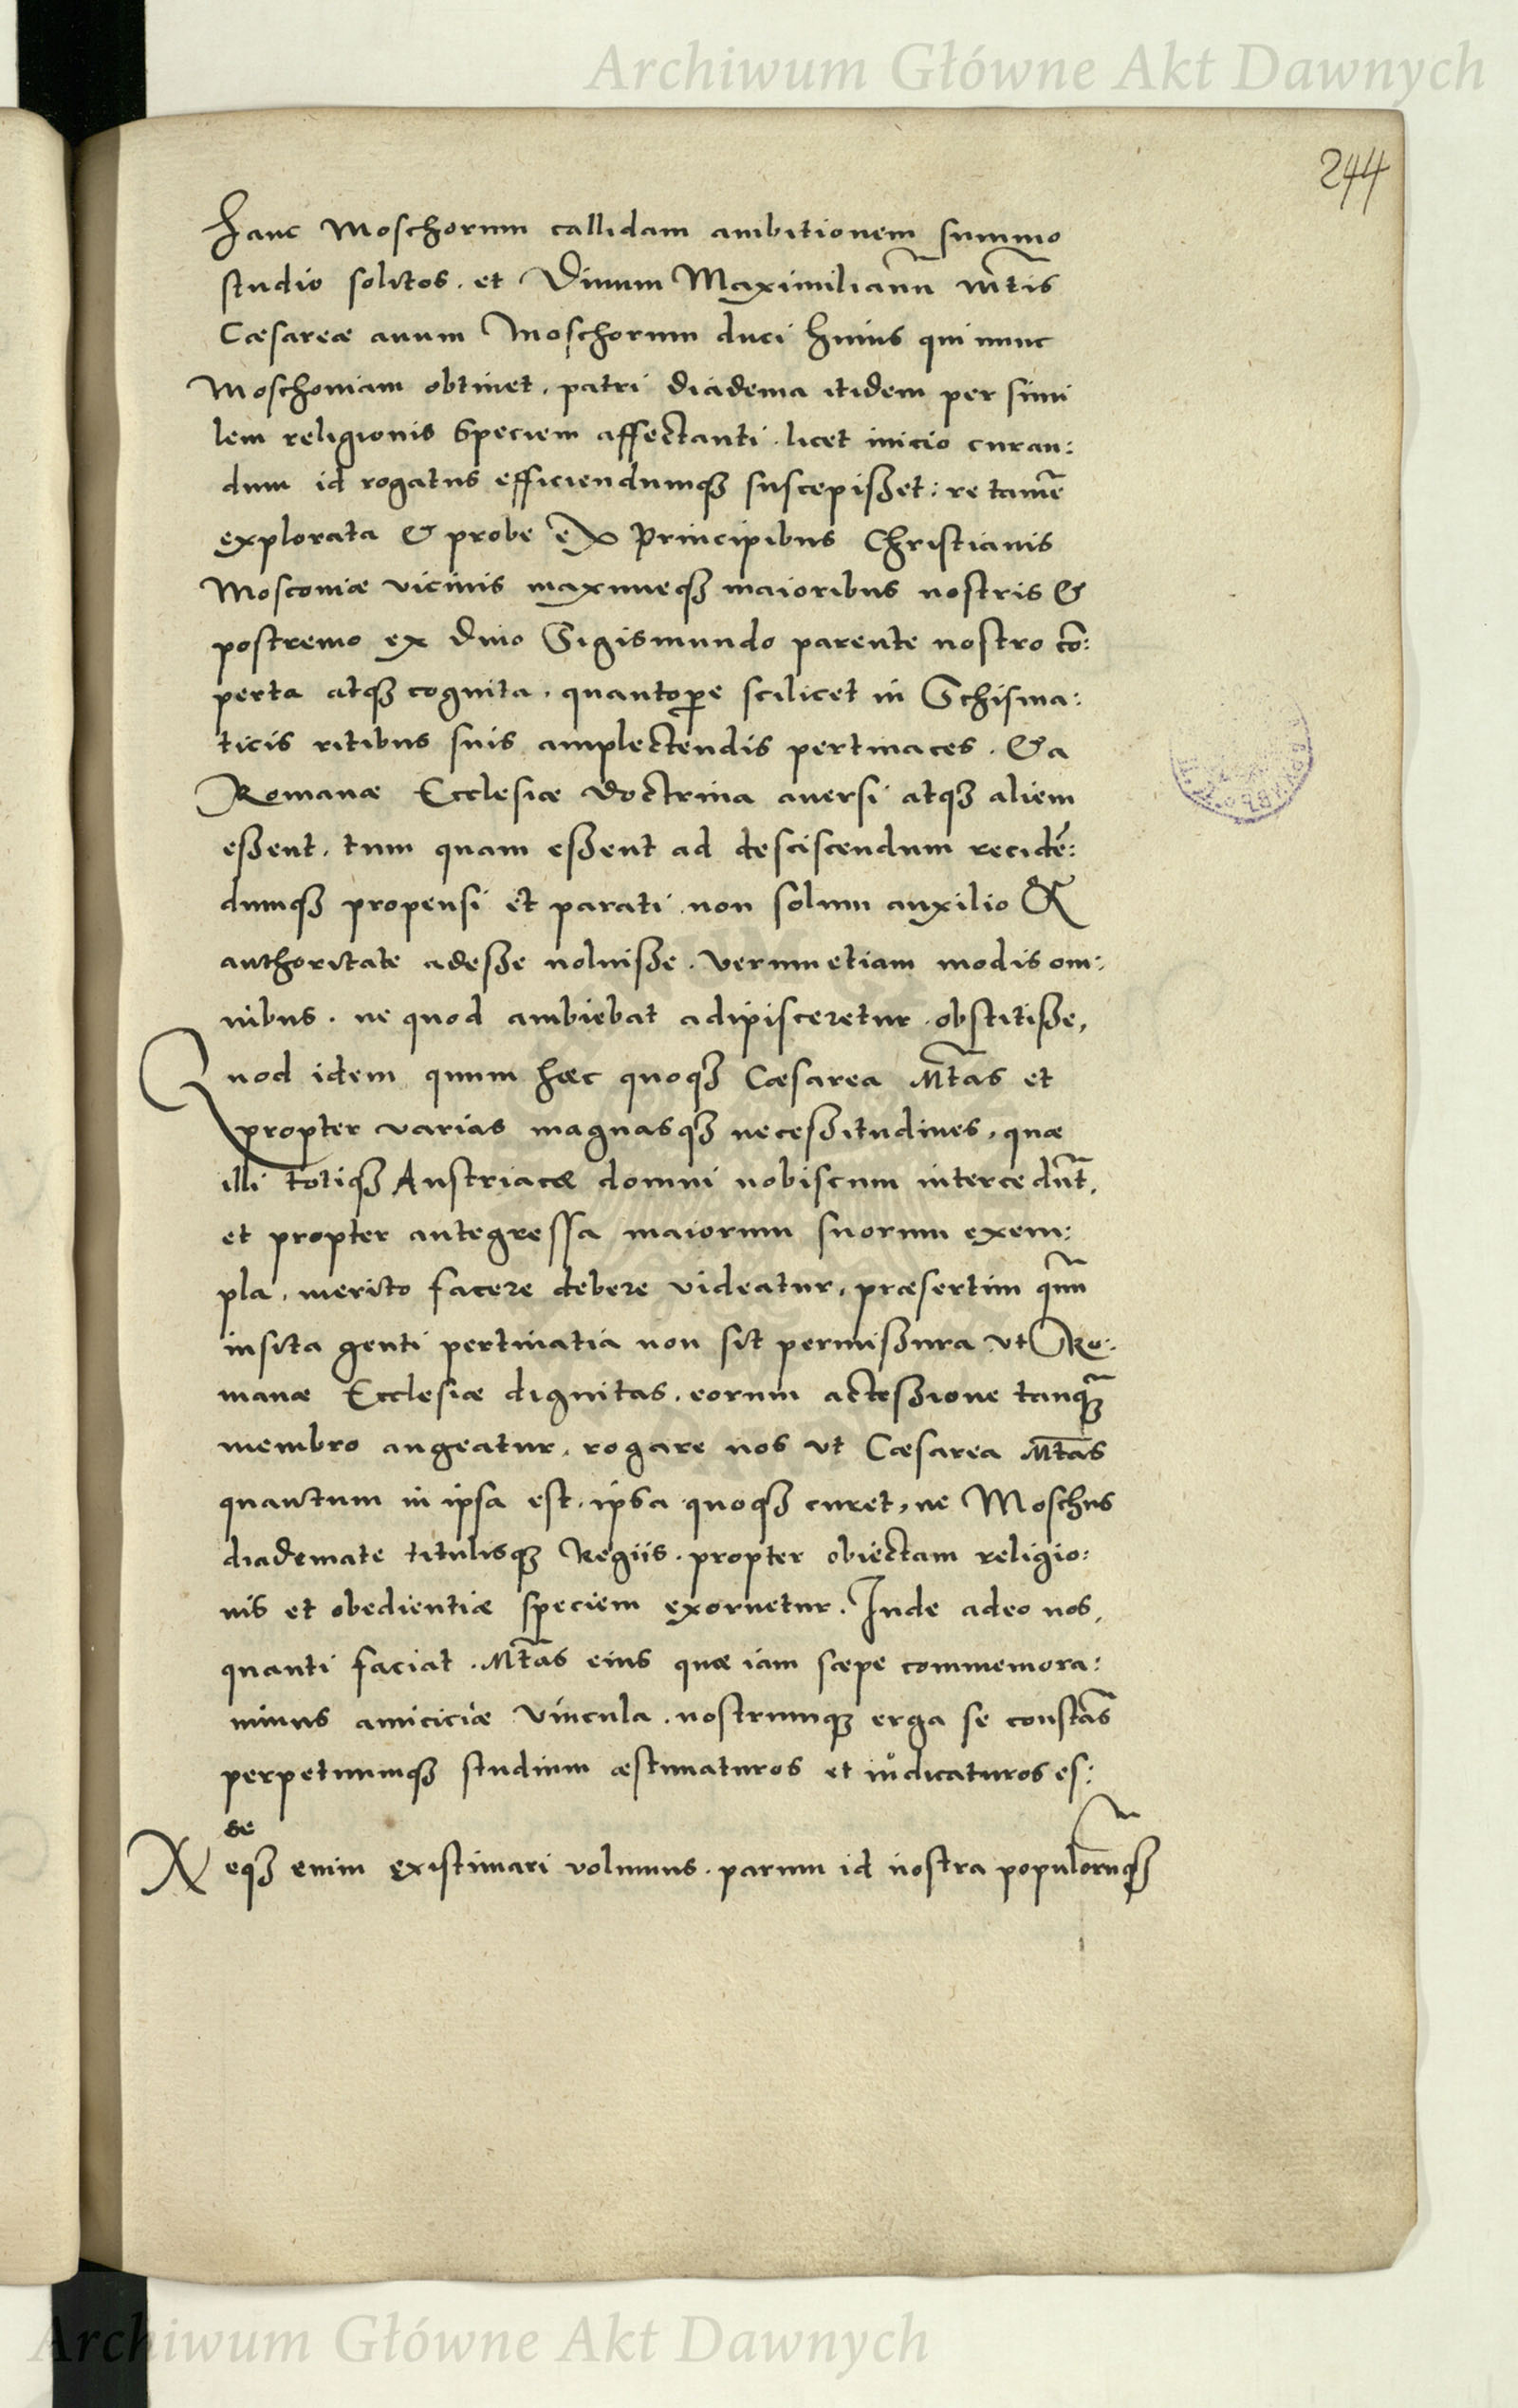 Archiwum Główne Akt Dawnych
244
Hanc Moschorum callidam ambitionem summo
studio solitos. et Diuum Maximilianū Mtis
Cæsareæ auum Moschorum duci huius qui nunc
Moschouiam obtinet, patri diadema itidem per simi
lem religionis speciem affectanti. licet inicio curan:
dum id rogatus efficiendumqꝫ suscepißet: re tamē
explorata & probe ex Principibus Christianis
Moscouiæ vicinis maximeqꝫ maioribus nostris &
postremo ex diuo Sigismundo parente nostro cō:
perta atqꝫ cognita, quantoꝑe scilicet in Schisma:
ticis ritibus suis amplectendis pertinaces. & a
Romanæ Ecclesiæ doctrina auersi atqꝫ alieni
eßent, tum quam eßent ad desciscendum recidē:
dumqꝫ propensi et parati. non solum auxilio &
authoritate adeße noluiße. verum etiam modis om:
nibus. ne quod ambiebat adipisceretur. obstitiße,
Quod idem quum hæc quoqꝫ Cæsarea Mtās et
propter varias magnasqꝫ neceßitudines, quæ
illi totiqꝫ Austriacæ domui nobiscum intercedūt,
et propter antegressa maiorum suorum exem:
pla, merito facere debere videatur, præsertim quū
insita genti pertinatia non sit permißura vt Ro:
manæ Ecclesiæ dignitas. eorum acceßione tanqꝫ̄
membro augeatur, rogare nos vt Cæsarea Mtās
quantum in ipsa est. ipsa quoqꝫ curet, ne Moschus
diademate titulisqꝫ Regiis. propter obiectam religio:
nis et obedientiæ speciem exornetur. Inde adeo nos,
quanti faciat. Mtās eius quæ iam sæpe commemora:
uimus amiciciæ vincula. nostrumqꝫ erga se constās
perpetuumqꝫ studium æstimaturos et iudicaturos es:
se
Neqꝫ enim existimari volumus. parum id nostra populorūqꝫ
Archiwum Główne Akt Dawnych